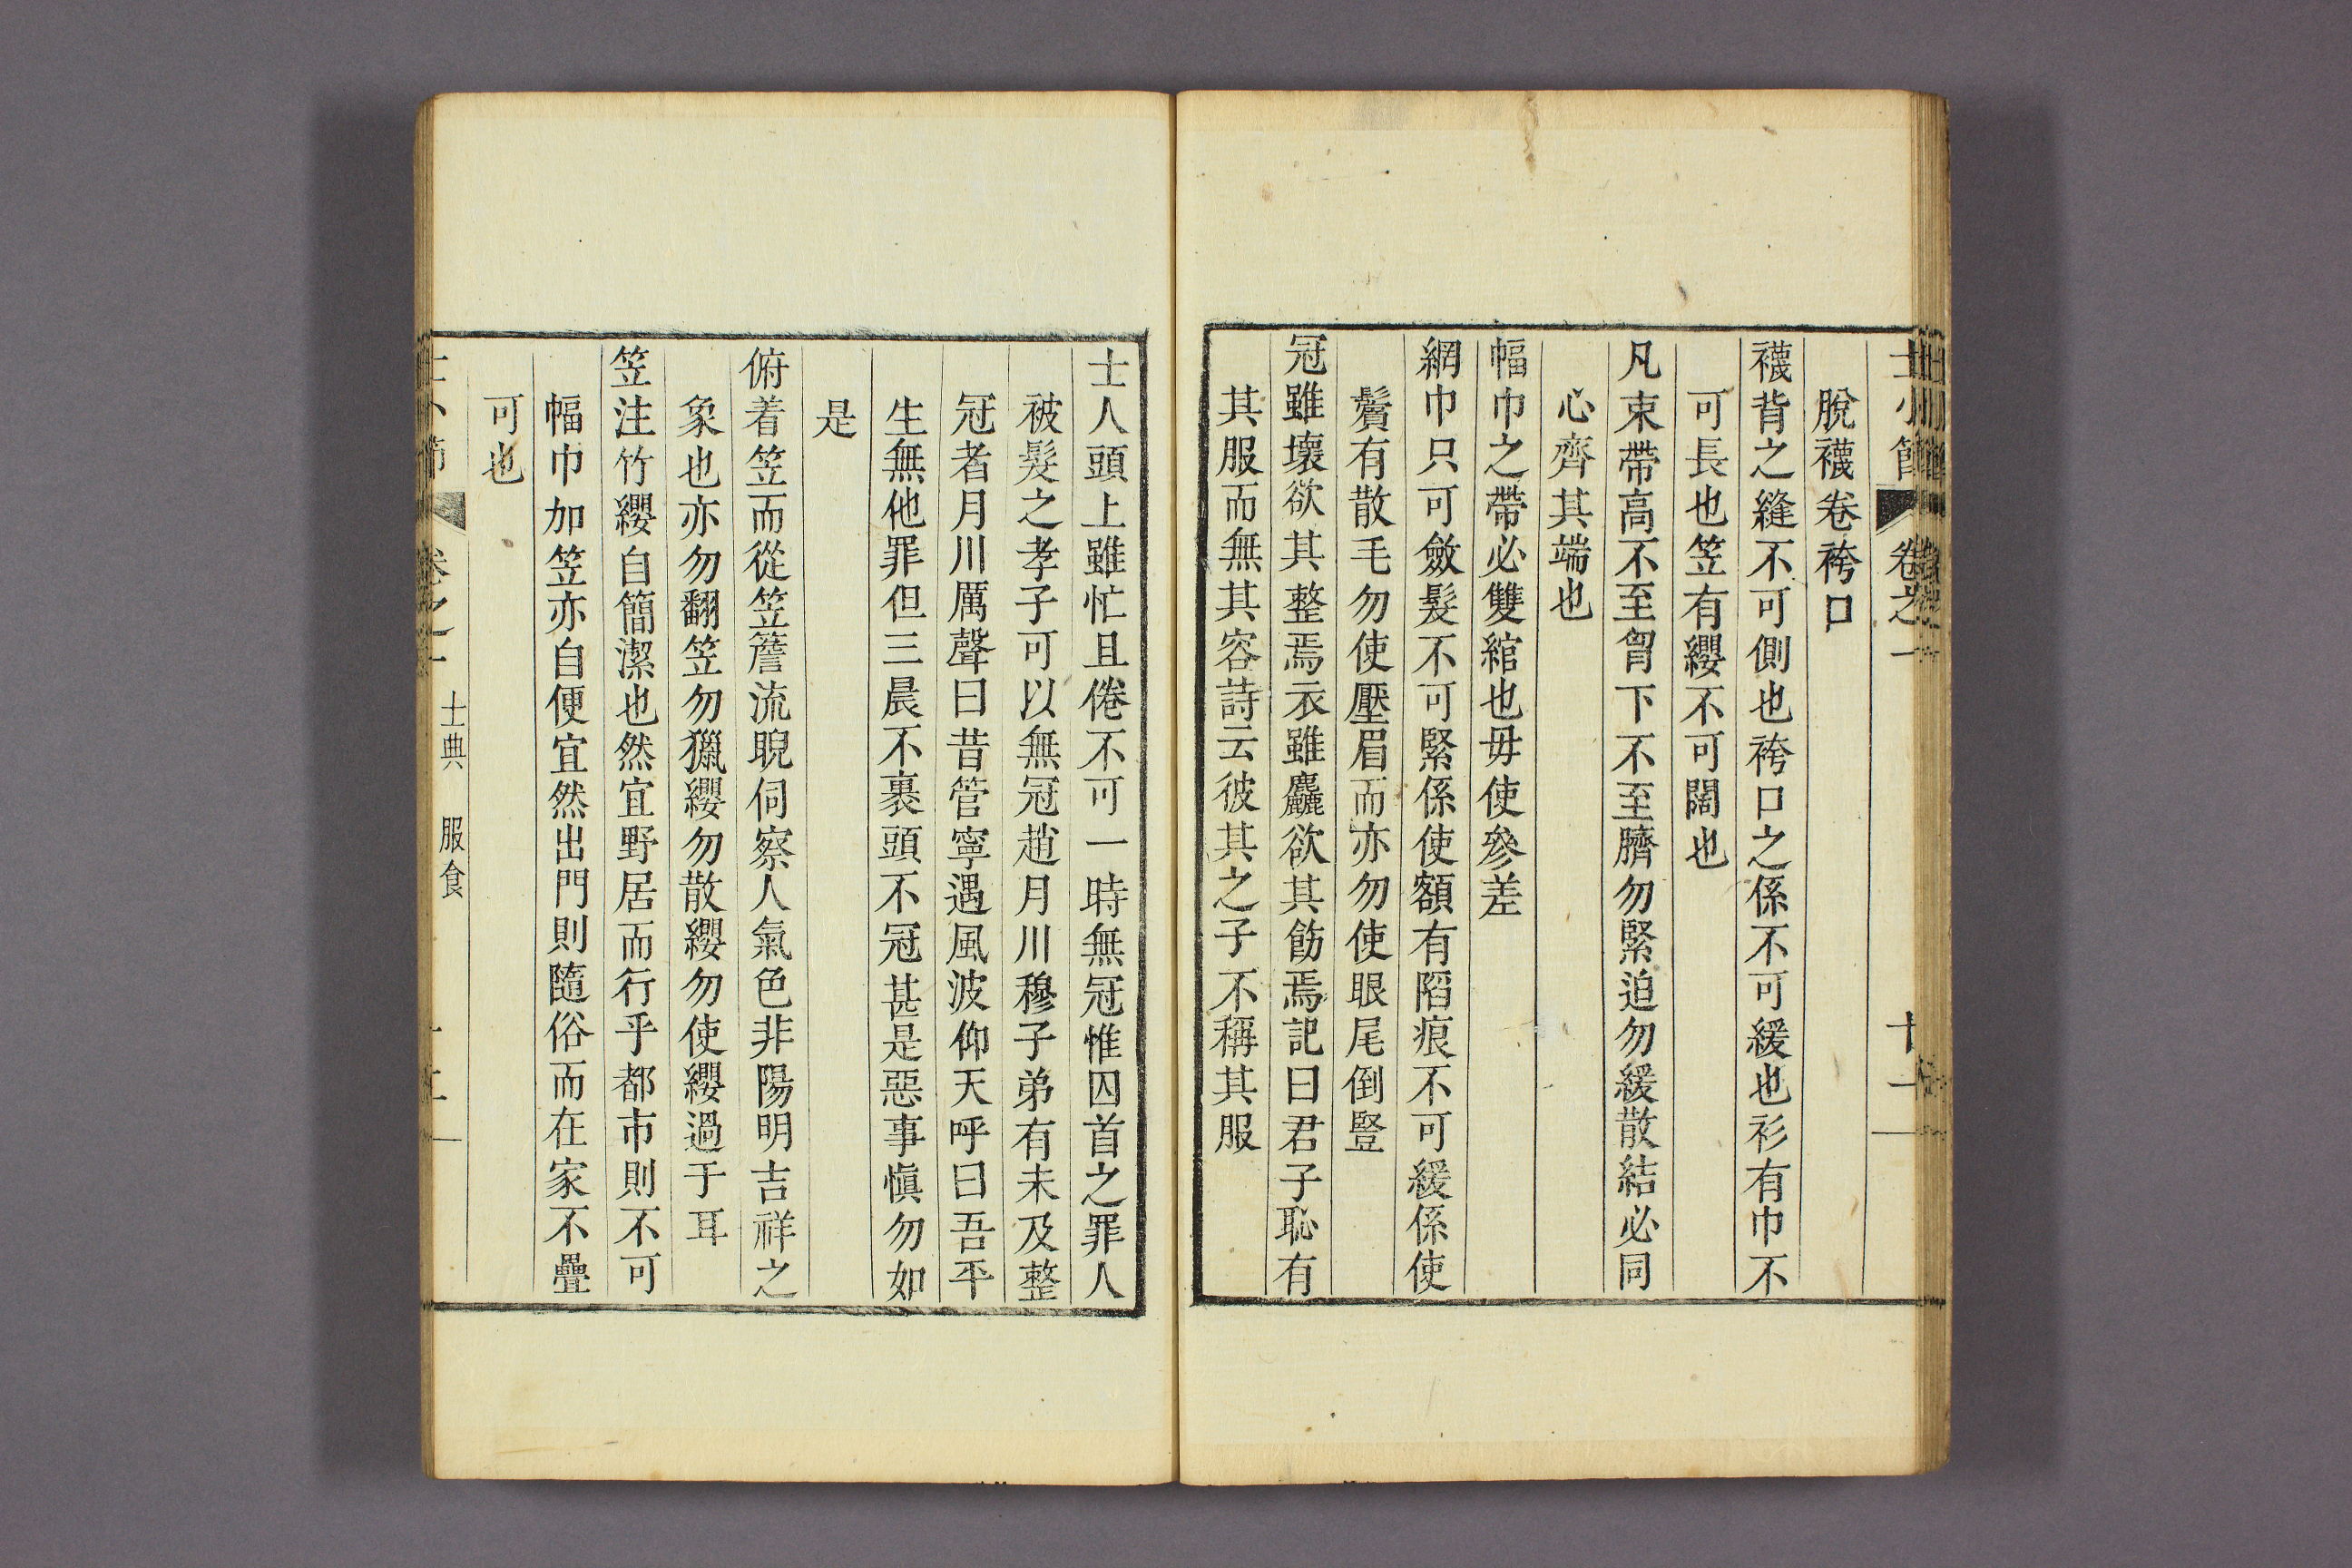 士小節 卷之一 十一
脫襪卷袴口
襪背之縫不可側也袴口之係不可緩也衫有巾不
可長也笠有纓不可闊也
凡束帶高不至胷下不至臍勿緊迫勿緩散結必同
心齊其端也
幅巾之帶必雙綰也毋使參差
網巾只可斂髮不可緊係使額有陷痕不可緩係使
鬢有散毛勿使壓眉而亦勿使眼尾倒豎
冠雖壞欲其整焉衣雖麤欲其飭焉記曰君子恥有
其服而無其容詩云彼其之子不稱其服
士人頭上雖忙且倦不可一時無冠惟囚首之罪人
被髮之孝子可以無冠趙月川穆子弟有未及整
冠者月川厲聲曰昔管寧遇風波仰天呼曰吾平
生無他罪但三晨不裹頭不冠甚是惡事愼勿如
是
俯着笠而從笠簷流睨伺察人氣色非陽明吉祥之
象也亦勿翻笠勿獵纓勿散纓勿使纓過于耳
笠注竹纓自簡潔也然宜野居而行乎都市則不可
幅巾加笠亦自便宜然出門則隨俗而在家不疊
可也
士小節 卷之一 士典 服食